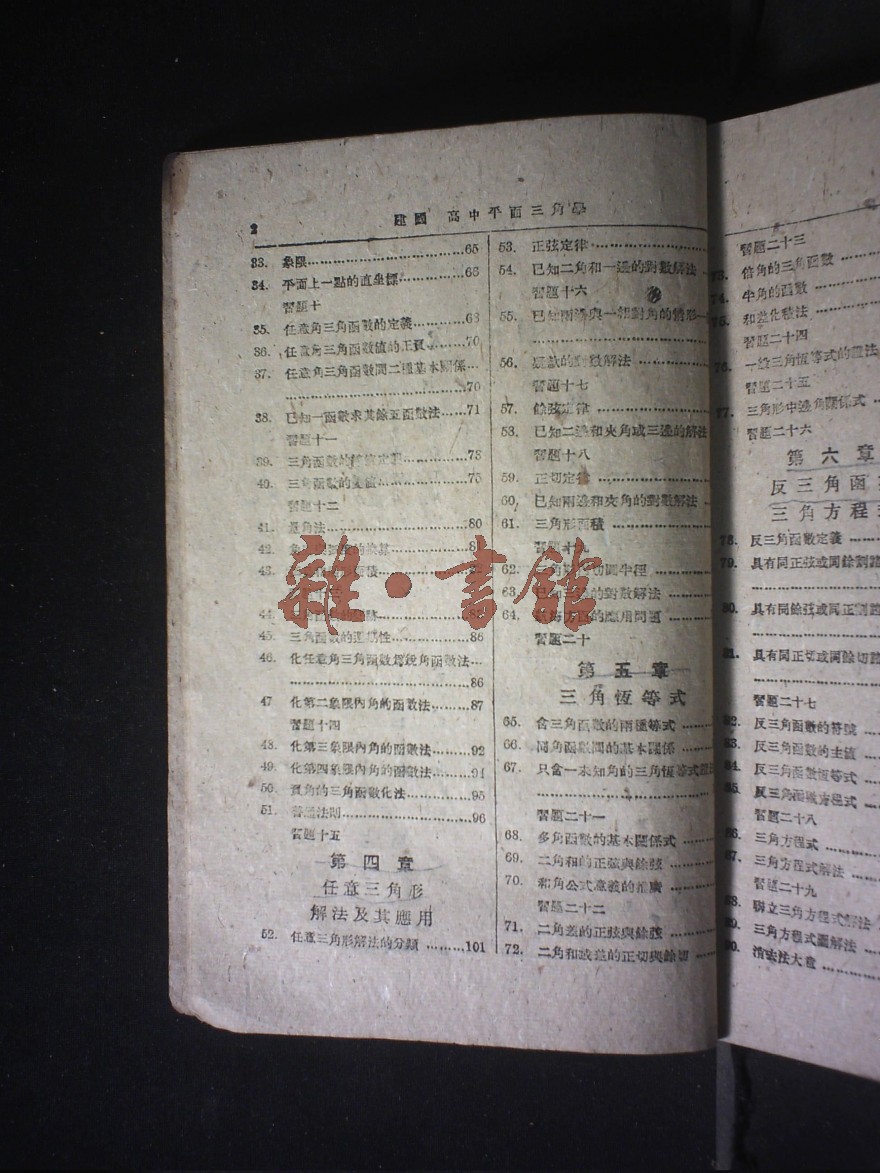 2
建國 高中平面三角學
33. 象限……65
34. 平面上一點的直坐標……66
習題十
35. 任意角三角函數的定義……68
36. 任意角三角函數值的正負……70
37. 任意角三角函數間二種基本關係…
……70
38. 已知一函數求其餘五函數法……71
習題十一
39. 三角函數的……73
40. 三角函數的變值……75
習題十二
41. 量角法……80
42.
43.
44.
45. 三角函數的連續性……86
46. 化任意角三角函數為銳角函數法…
……86
47 化第二象限內角的函數法……87
習題十四
48. 化第三象限內角的函數法……92
49. 化第四象限內角的函數法……94
50. 負角的三角函數化法……95
51. 普通法則……96
習題十五
第四章
任意三角形
解法及其應用
52. 任意三角形解法的分類……101
53. 正弦定律……
54. 已知二角和一邊的對數解法……
習題十六
55. 已知兩邊與一組對角的情形—
……
56. 的對數解法……
習題十七
57. 餘弦定律……
58. 已知二邊和夾角或三邊的解法
習題十八
59. 正切定律……
60. 已知兩邊和夾角的對數解法……
61. 三角形面積……
習題十
62. 圓半徑……
63. 已知三邊的對數解法……
64. 方面的應用問題……
習題二十
第五章
三角恆等式
65. 含三角函數的兩種等式……
66. 同角函數間的基本關係……
67. 只含一未知角的三角恆等式證法
……
習題二十一
68. 多角函數的基本關係式……
69. 二角和的正弦與餘弦……
70. 和角公式意義的推廣……
習題二十二
71. 二角差的正弦與餘弦……
72. 二角和或差的正切與餘切……
習題二十三
73. 倍角的三角函數……
74. 半角的函數……
75. 和差化積法……
習題二十四
76. 一般三角恆等式的證法
習題二十五
77. 三角形中邊角關係式……
習題二十六
第六章
反三角函
三角方程
78. 反三角函數定義……
79. 具有同正弦或同餘割諸
80. 具有同餘弦或同正割諸
……
81. 具有同正切或同餘切諸
……
習題二十七
82. 反三角函數的符號……
83. 反三角函數的主值……
84. 反三角函數恆等式……
85. 反三角函數方程式……
習題二十八
86. 三角方程式……
87. 三角方程式解法……
習題二十九
88. 聯立三角方程式解法
89. 三角方程式圖解法……
90. 消去法大意……
雜·書館